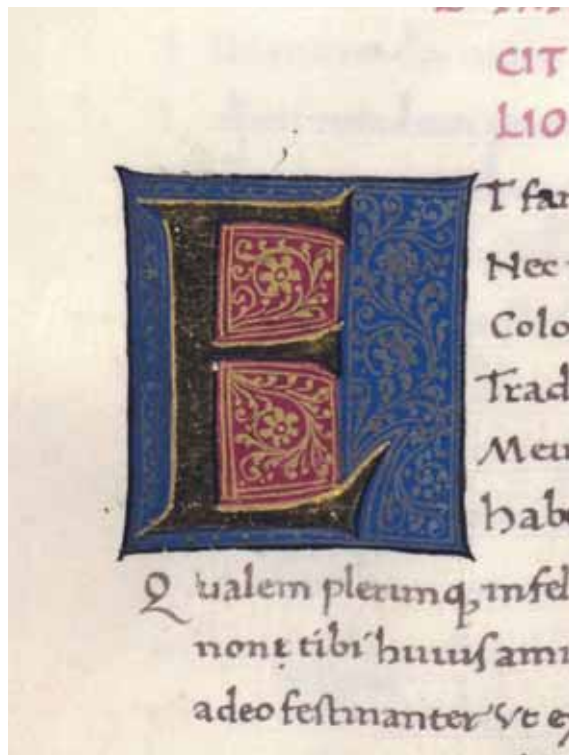 CIT
LIO
E
T fan
Nec
Colo
Trad
Mem
habe
Qualem plerumq; infel
nonę tibi huiusami
adeo festinanter Vt e